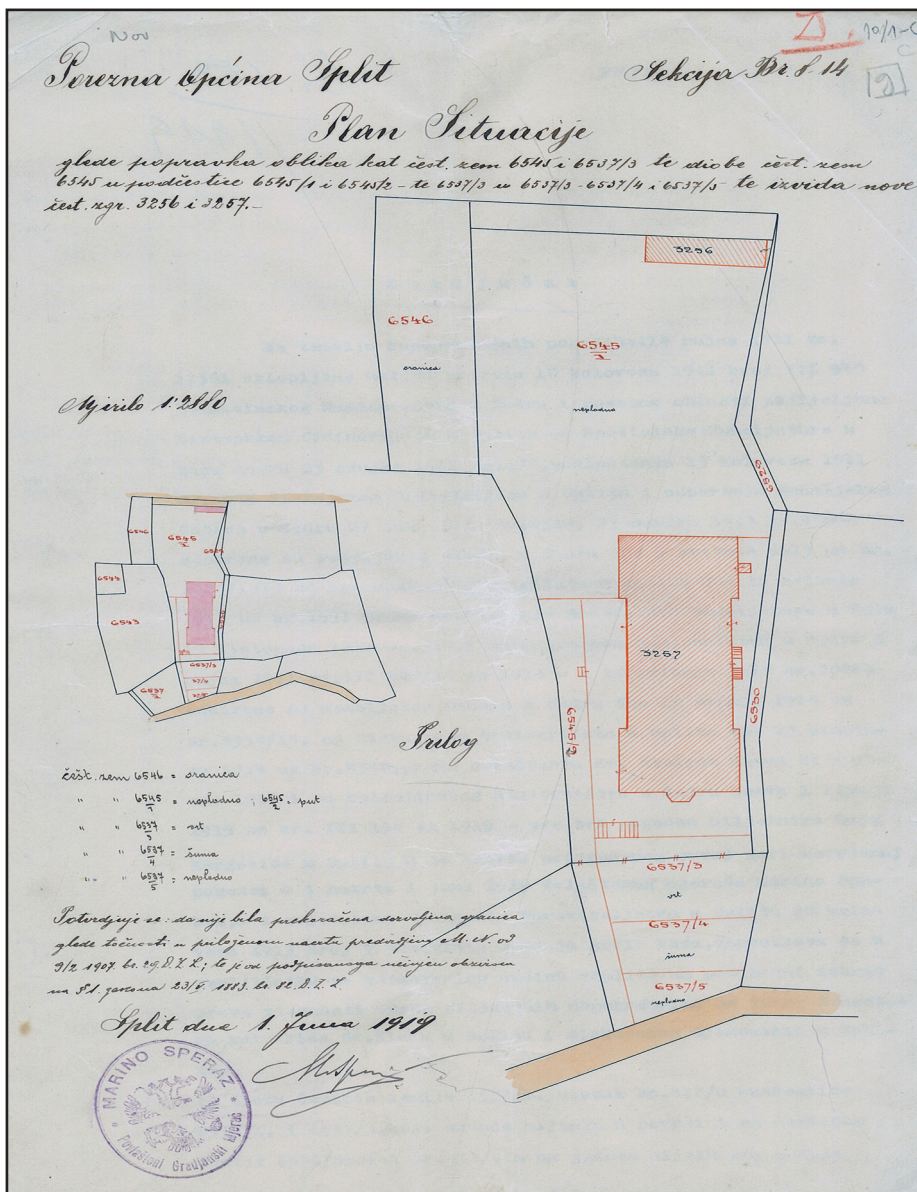 Nov
D.
10/1-C
Porezna Općina Split
Sekcija Br. 8-14
9
Plan Situacije
glede popravka oblika kat čest. zem 6545 i 6537/3 te diobe čest. zem
6545 u podčestice 6545/1 i 6545/2 - te 6537/3 u 6537/3 - 6537/4 i 6537/5 te izvida nove
čest. zgr. 3256 i 3257.-
3256
6546
oranica
6545
1
neplodno
Mjerilo 1:2880
6529
6546
6545
1
6544
6543
6537/3
37/4
6537
3257
6530
6545/2
Prilog
čest. zem 6546 = oranica
" " 6545/1 = neplodno ; 6545/2 = put
" " 6537/3 = vrt
" " 6537/4 = šuma
" " 6537/5 = neplodno
6537/3
vrt
6537/4
šuma
6537/5
neplodno
Potvrdjuje se: da nije bila prekoračena dozvoljena granica
glede točnosti u priloženom nacrtu predvidjena M. N. od
9/2 1907. br. 29. D. Z. L.; te je od podpisanoga učinjen obzirom
na § 1. zakona 23/5. 1883. br. 82. D. Z. L.
Split dne 1. Juna 1919
MARINO SPERAZ
Povlašteni Gradjanski Mjerač